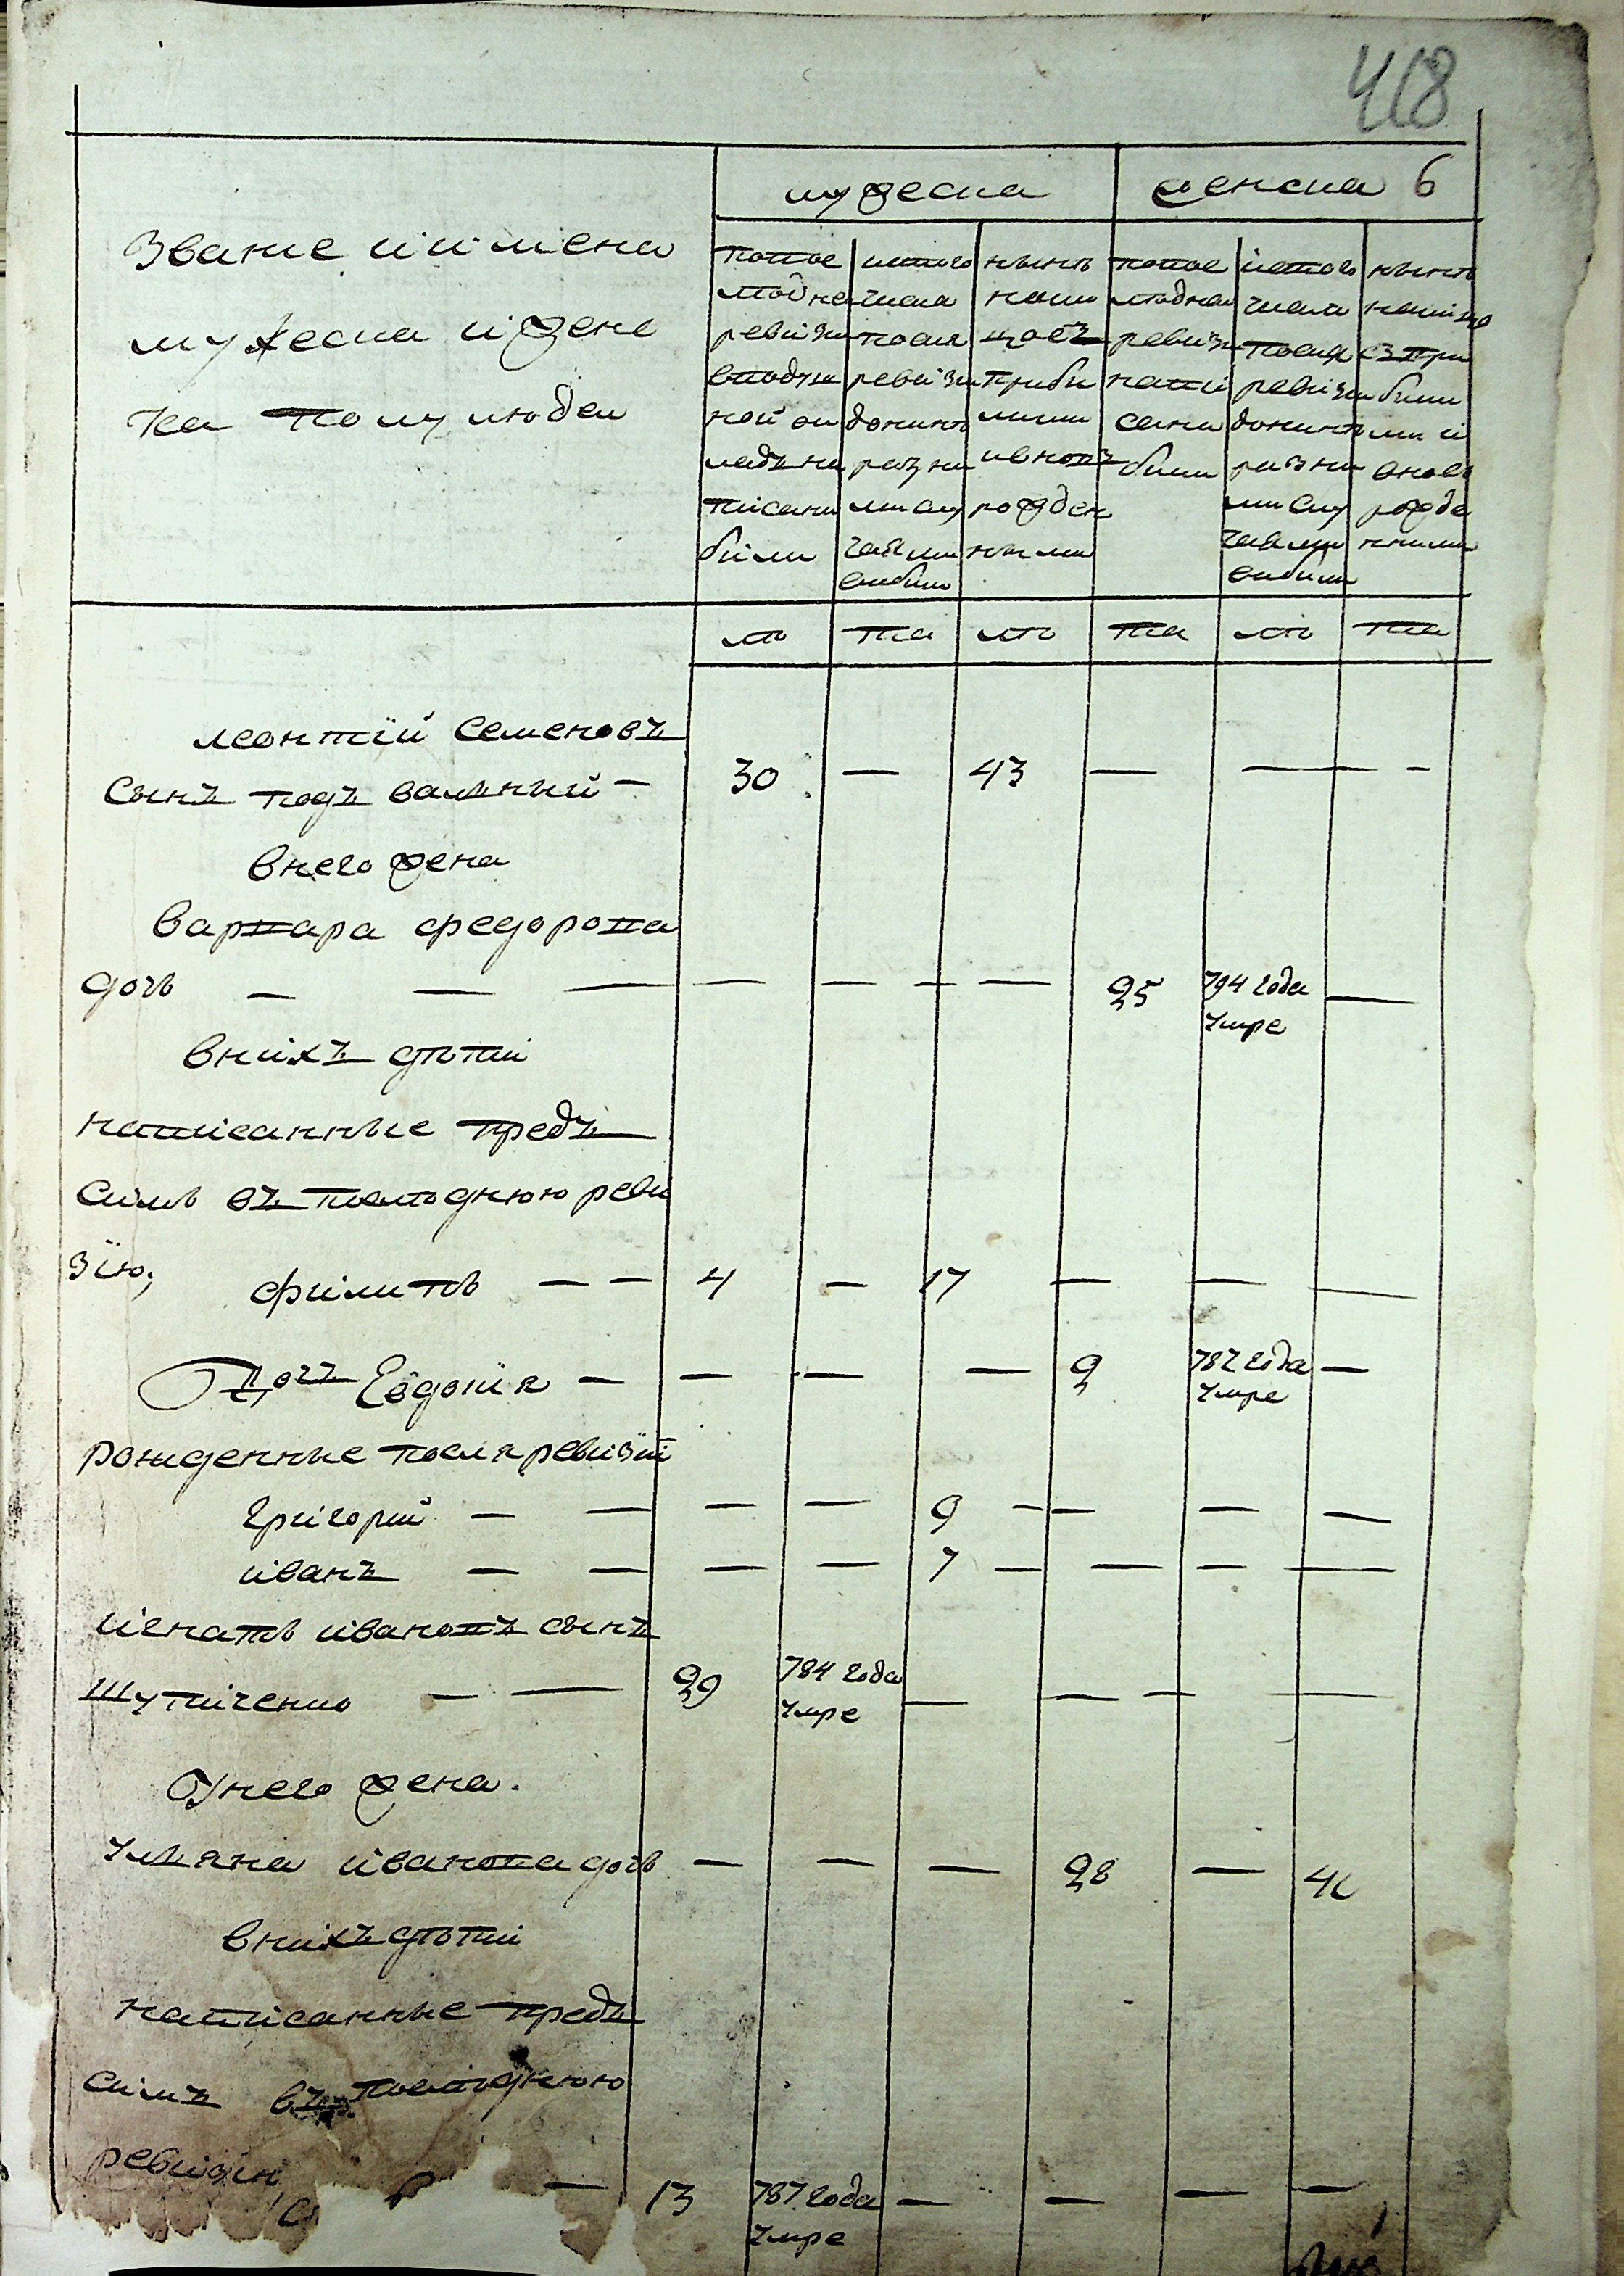 418
мужеска женска 6
Звание и имена
мужеска и жене
ка полу людеи
попос
ледне
ревизи
вподуш
ной ок
ладъ на
писани
били
истого
числа
посля
ревизи
донинѣ
разни
ми слу
чаями
вибило
нынѣ
нали
цо съ
приби
лими
и вновъ
рожден
ными
попос
ледней
ревизи
напи
сани
били
истого
числа
посля
ревизи
донинѣ
разни
ми слу
чаями
вибили
нынѣ
налице
з при
били
ми и
вновь
рожде
нними
лѣ та лѣ та лѣ та
леонтїй семеновъ
сынъ подъ вальный — 30 — 43 — — —
внего жена
варвара федорова
дочь — — — — — — — 25 794 года —
умре
внихъ дѣти
написанные предъ
симъ въ последнюю реви
зїю; филипъ — — 4 — 17 — — —
Дочъ Евдокїя — — — — 9 782 года —
умре
рожденные посля ревизїи
григорий — — — — 9 — — — —
иванъ — — — — 7 — — — —
игнатъ ивановъ сынъ
Шупиченко — — 29 784 года — — — —
умре
Унего жена.
ульяна иванова дочь — — — 28 — 41
внихъ дѣти
написанные предъ
симъ въ последнюю
ревизїю
— 13 787 года — — — —
умре